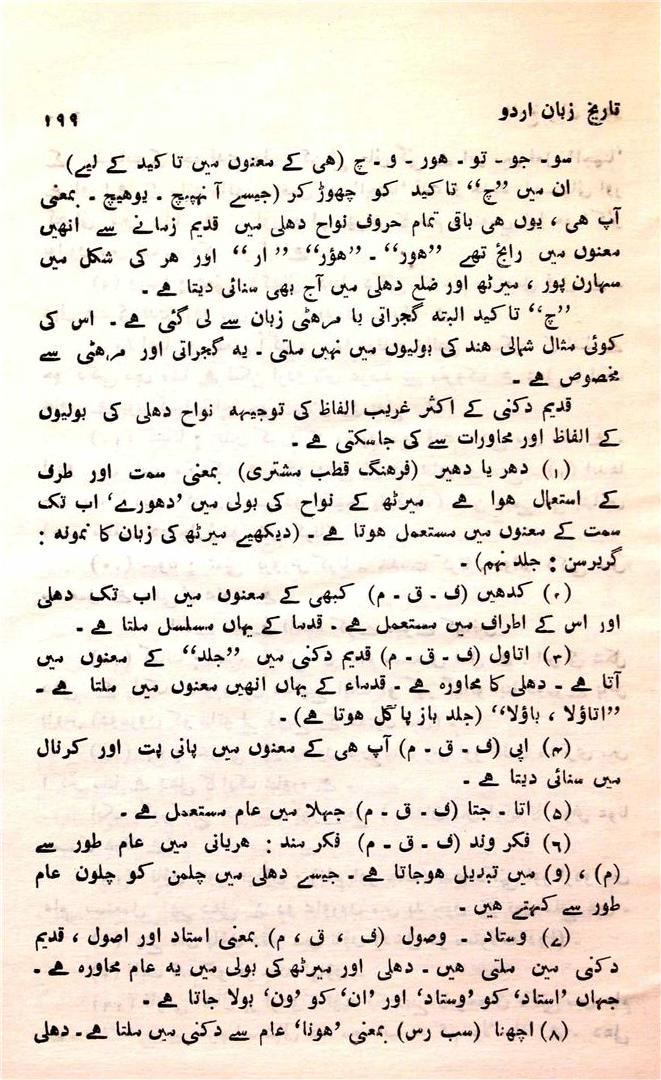 تاریخ زبان اردو
۱۹۹
سو۔ جو۔ تو۔ ھور۔ و۔ چ (ھی کے معنوں میں تاکید کے لیے)
ان میں ”چ“ تاکید کو چھوڑ کر (جیسے آنہیچ۔ یوھیچ۔ بمعنی
آپ ھی ، یوں ھی باقی تمام حروف نواح دھلی میں قدیم زمانے سے انھیں
معنوں میں رائج تھے ”ھور“۔ ”ھؤر“ ”ار“ اور ھر کی شکل میں
سہارن پور ، میرٹھ اور ضلع دھلی میں آج بھی سنائی دیتا ہے ۔
”چ“ تاکید البتہ گجراتی یا مرھٹی زبان سے لی گئی ہے ۔ اس کی
کوئی مثال شمالی ھند کی بولیوں میں نہیں ملتی ۔ یہ گجراتی اور مرھٹی سے
مخصوص ہے ۔
قدیم دکنی کے اکثر غریب الفاظ کی توجیہہ نواح دھلی کی بولیوں
کے الفاظ اور محاورات سے کی جاسکتی ہے ۔
(۱) دھر یا دھیر (فرھنگ قطب مشتری) بمعنی سمت اور طرف
کے استعمال ھوا ہے میرٹھ کے نواح کی بولی میں ’دھورے‘ اب تک
سمت کے معنوں میں مستعمل ھوتا ہے ۔ (دیکھیے میرٹھ کی زبان کا نمونہ :
گریرسن : جلد نہم) ۔
(۲) کدھیں (ف ۔ ق ۔ م) کبھی کے معنوں میں اب تک دھلی
اور اس کے اطراف میں مستعمل ہے ۔ قدما کے یہاں مسلسل ملتا ہے ۔
(۳) اتاول (ف ۔ ق ۔ م) قدیم دکنی میں ”جلد“ کے معنوں میں
آتا ہے ۔ دھلی کا محاورہ ہے ۔ قدماء کے یہاں انھیں معنوں میں ملتا ہے ۔
”اتاؤلا ، باؤلا“ (جلد باز پاگل ھوتا ہے) ۔
(۴) اپی (ف ۔ ق ۔ م) آپ ھی کے معنوں میں پانی پت اور کرنال
میں سنائی دیتا ہے ۔
(۵) اتا ۔ جتا (ف ۔ ق ۔ م) جہلا میں عام مستعمل ہے ۔
(۶) فکر وند (ف ۔ ق ۔ م) فکر مند : ھریانی میں عام طور سے
(م) ، (و) میں تبدیل ھوجاتا ہے ۔ جیسے دھلی میں چلمن کو چلون عام
طور سے کہتے ھیں ۔
(۷) وستاد ۔ وصول (ف ، ق ، م) بمعنی استاد اور اصول ، قدیم
دکنی مین ملتی ھیں ۔ دھلی اور میرٹھ کی بولی میں یہ عام محاورہ ہے ۔
جہاں ’استاد‘ کو ’وستاد‘ اور ’ان‘ کو ’ون‘ بولا جاتا ہے ۔
(۸) اچھنا (سب رس) بمعنی ’ھونا‘ عام سے دکنی میں ملتا ہے ۔ دھلی